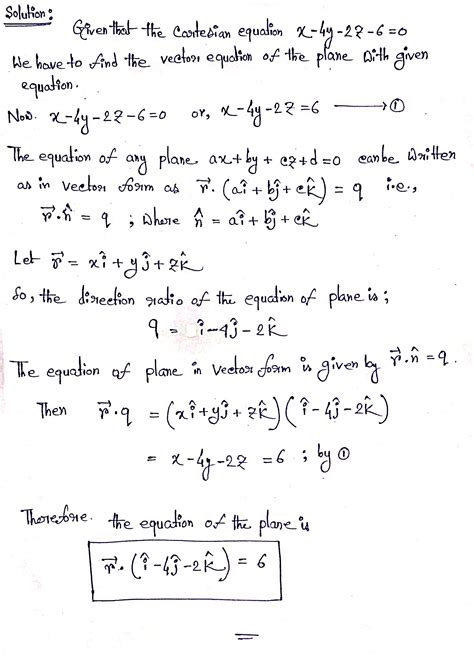 Solution:
Given that the Cartesian equation x-4y-2z-6=0
We have to find the vector equation of the plane with given
equation.
Now. x-4y-2z-6=0 or, x-4y-2z=6 ⟶ ①
The equation of any plane ax+by+cz+d=0 can be written
as in vector form as r⃗.(aî+bĵ+ck̂) = q i.e.,
r⃗.n̂ = q ; where n̂ = aî+bĵ+ck̂
Let r⃗ = xî+yĵ+zk̂
So, the direction ratio of the equation of plane is;
q = î-4ĵ-2k̂
The equation of plane in vector form is given by r⃗.n̂=q.
Then r⃗.q = (xî+yĵ+zk̂)(î-4ĵ-2k̂)
= x-4y-2z = 6 ; by ①
Therefore. the equation of the plane is
r⃗.(î-4ĵ-2k̂) = 6